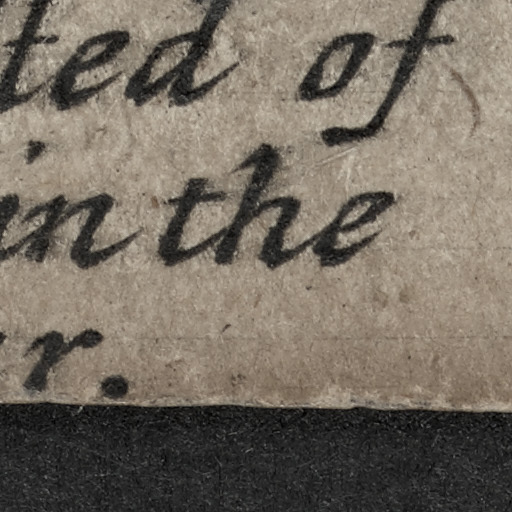 ted of
in the
r.